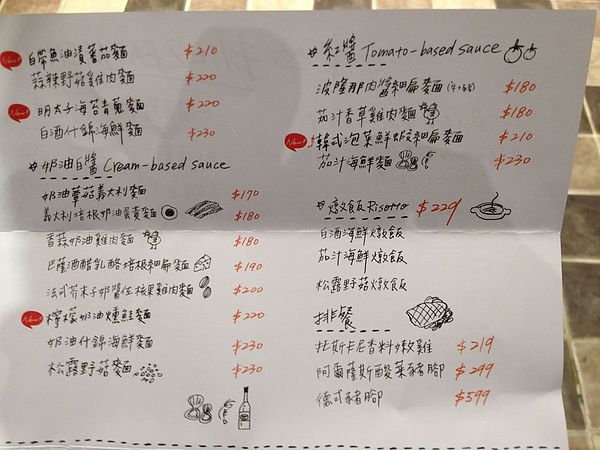 New! 白帶魚油漬蕃茄麵 $210
蒜辣野菇雞肉麵 $220
New! 明太子海苔青蔥麵 $220
白酒什錦海鮮麵 $230
# 奶油白醬 Cream-based sauce
奶油蘑菇義大利麵 $170
義大利培根奶油蛋黃麵 $180
香蒜奶油雞肉麵 $180
巴薩酒醋乳酪培根細扁麵 $190
法式芥末子奶醬佐核果雞肉麵 $200
New! 檸檬奶油燻鮭麵 $220
奶油什錦海鮮麵 $230
松露野菇麵 $230
# 紅醬 Tomato-based sauce
波隆那肉醬細扁麵 $180
茄汁香草雞肉麵 $180
New! 韓式泡菜鮮蝦細扁麵 $210
茄汁海鮮麵 $230
# 燉飯 Risotto $229
白酒海鮮燉飯
茄汁海鮮燉飯
松露野菇燉飯
排餐
托斯卡尼香料嫩雞 $219
阿爾薩斯酸菜豬腳 $299
德式豬腳 $599